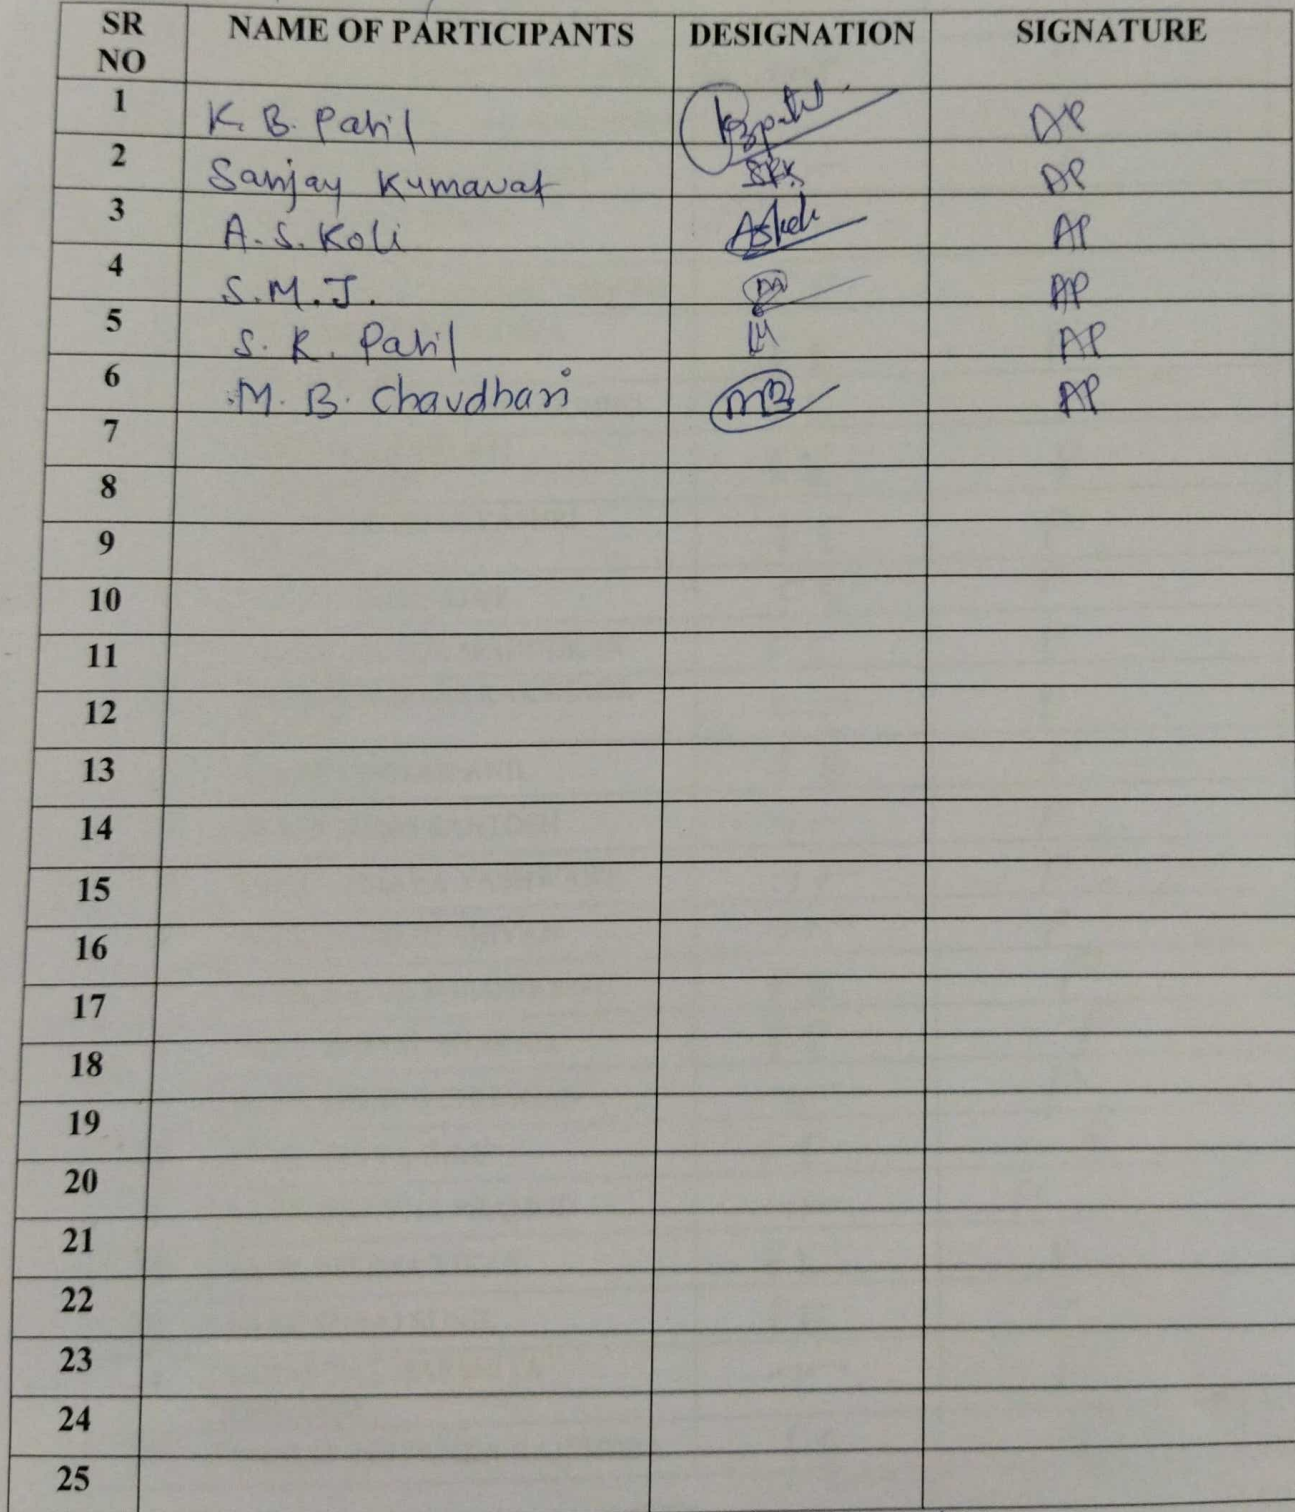 SR NO NAME OF PARTICIPANTS DESIGNATION SIGNATURE
1 K. B. Patil KBPatil AP
2 Sanjay Kumavat SRK AP
3 A. S. Koli ASKoli AP
4 S. M. J. AP
5 S. R. Patil AP
6 M. B. Chaudhari MB AP
7
8
9
10
11
12
13
14
15
16
17
18
19
20
21
22
23
24
25